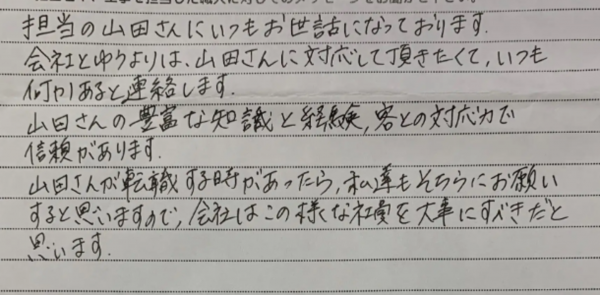 担当の山田さんにいつもお世話になっております.
会社とゆうよりは、山田さんに対応して頂きたくて、いつも
何かあると連絡します.
山田さんの豊富な知識と経験、客との対応力で
信頼があります.
山田さんが転職する時があったら、私達もそちらにお願い
すると思いますので、会社はこの様くな社員を大事にすべきだと
思います.